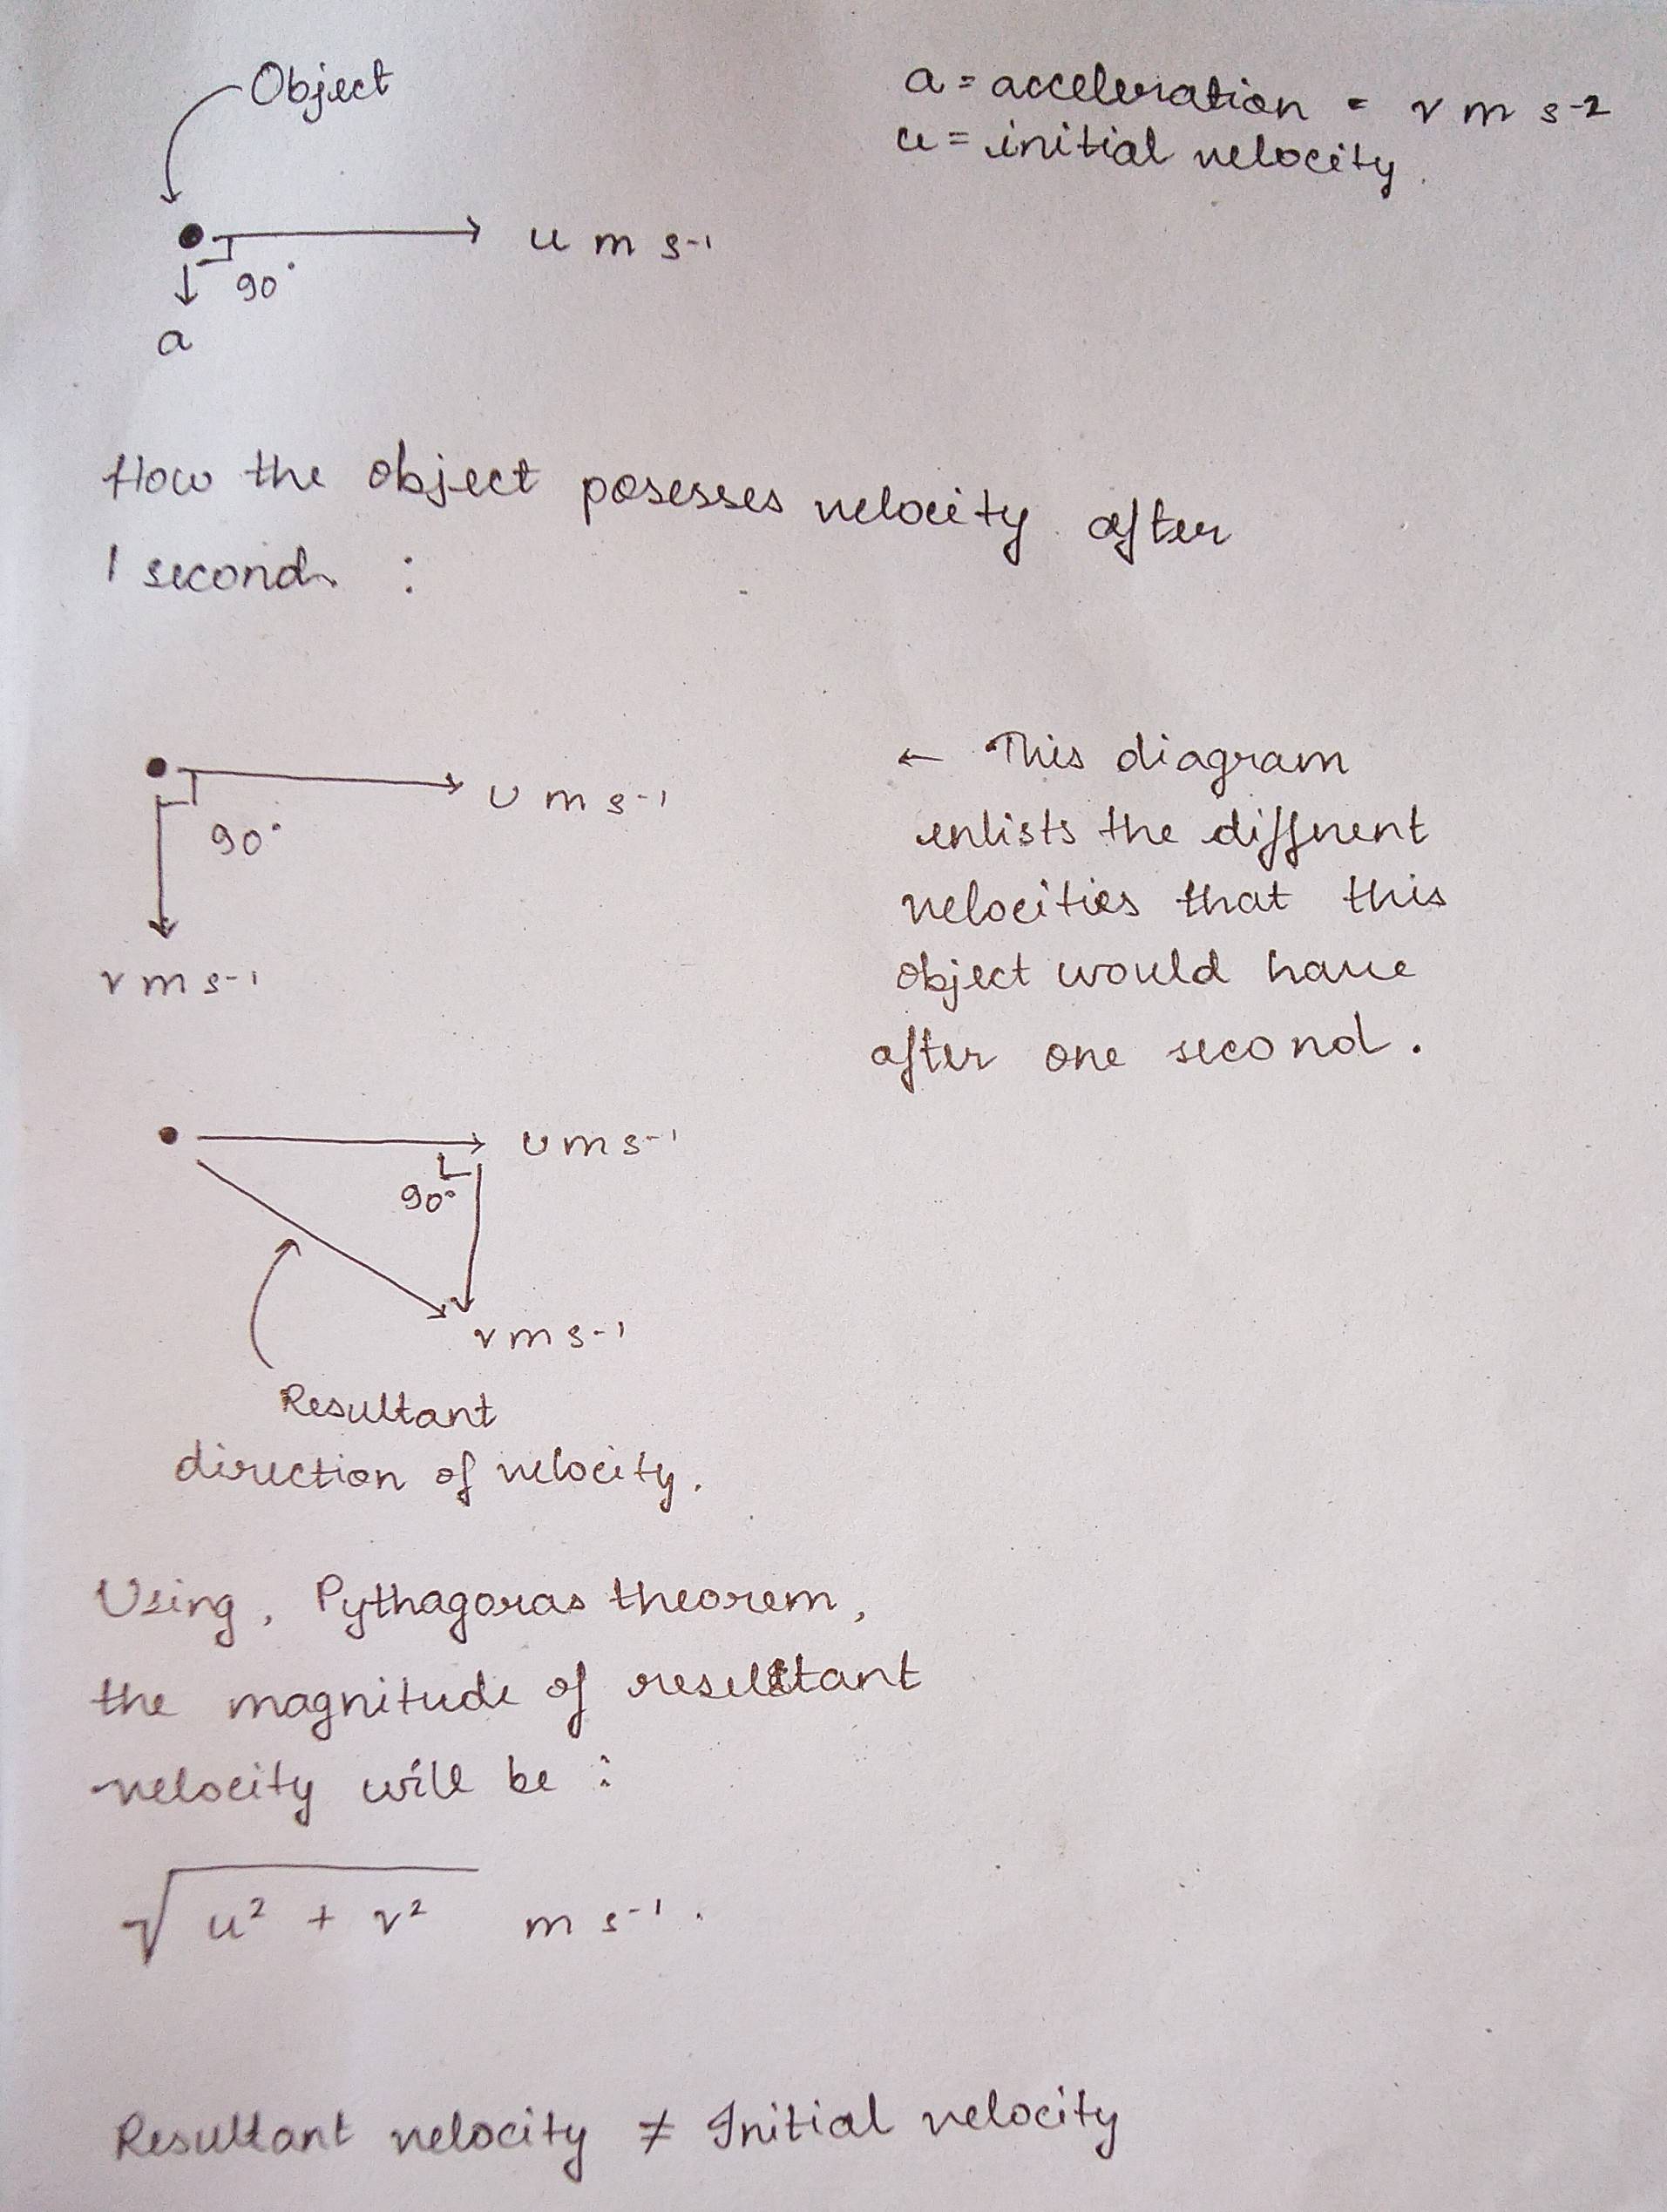 Object
a = acceleration = v m s-2
u = initial velocity.
u m s-1
90°
a
How the object posesses velocity after
1 second :
u m s-1
90°
v m s-1
← This diagram
enlists the diffrent
velocities that this
object would have
after one second.
u m s-1
90°
v m s-1
Resultant
direction of velocity.
Using, Pythagoras theorem,
the magnitude of resultant
velocity will be :
√u² + v² m s-1.
Resultant velocity ≠ Initial velocity